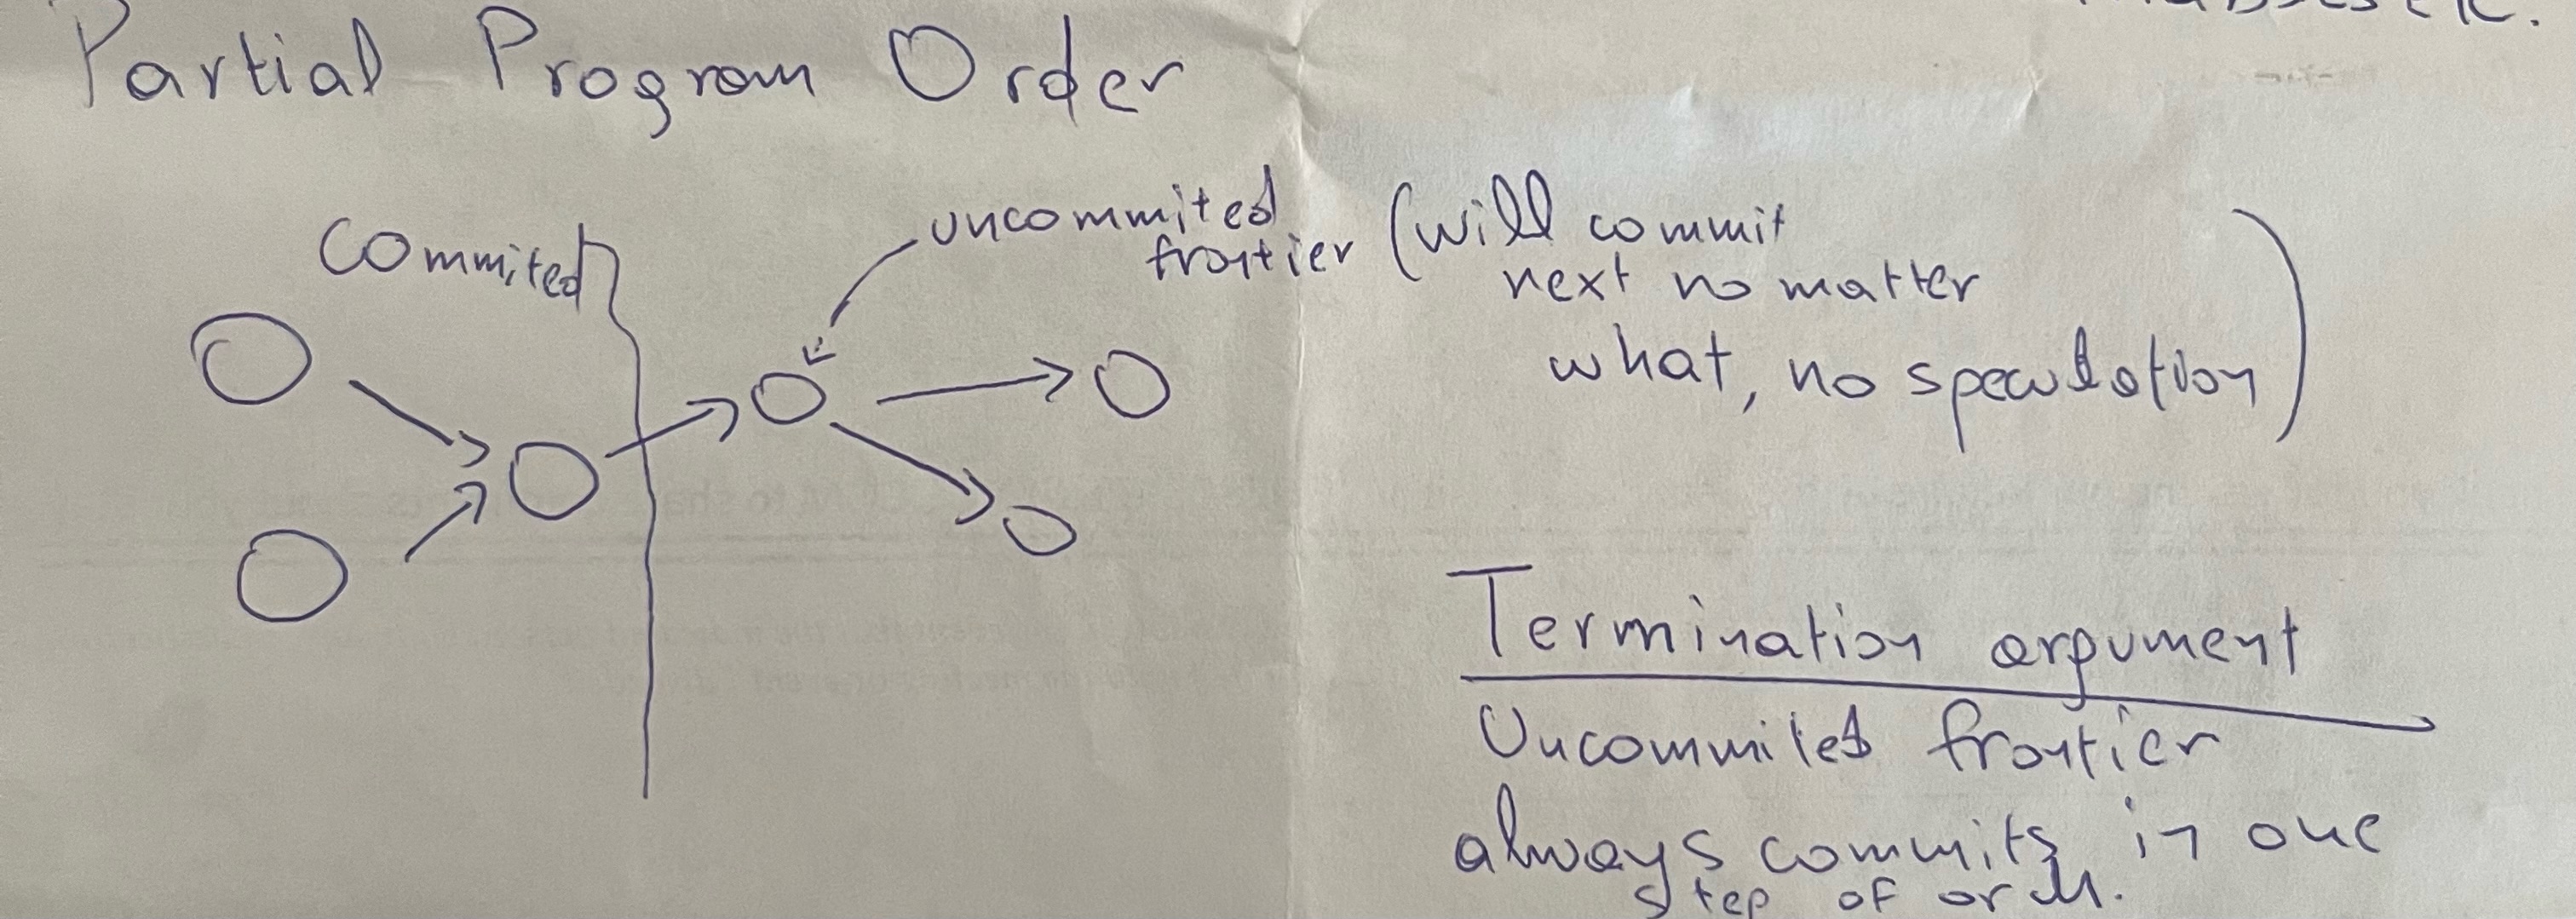 Partial Program Order
Commited
uncommited
frontier
(will commit
next no matter
what, no speculation)
Termination argument
Uncommited frontier
always commits in one
step of